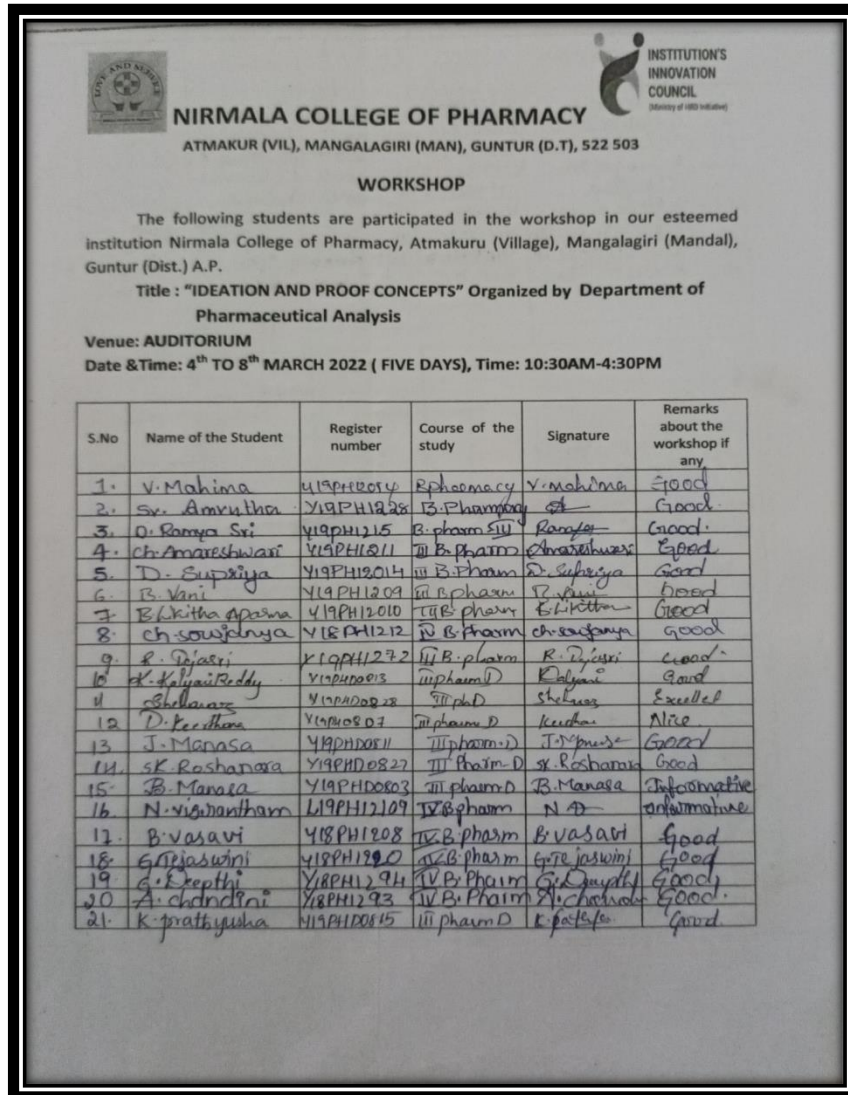 LOVE AND SERVICE
INSTITUTION'S
INNOVATION
COUNCIL
(Ministry of HRD Initiative)
NIRMALA COLLEGE OF PHARMACY
ATMAKUR (VIL), MANGALAGIRI (MAN), GUNTUR (D.T), 522 503
WORKSHOP
The following students are participated in the workshop in our esteemed
institution Nirmala College of Pharmacy, Atmakuru (Village), Mangalagiri (Mandal),
Guntur (Dist.) A.P.
Title : "IDEATION AND PROOF CONCEPTS" Organized by Department of
Pharmaceutical Analysis
Venue: AUDITORIUM
Date &Time: 4th TO 8th MARCH 2022 ( FIVE DAYS), Time: 10:30AM-4:30PM
S.No Name of the Student Register number Course of the study Signature Remarks about the workshop if any
1. V. Mahima V. mahima Good
2. Sr. Amrutha Y19PH1228 Good
3. D. Ramya Sri Y19PH1215 B. pharm III Good.
4. ch. Amareshwari Y19PH1211 III B. Pharm Amareshwari Good
5. D. Supriya Y19PH12014 III B. Pharm D. Supriya Good
6. B. Vani Y19PH1209 III B pharm B. Vani Good
7 B. Likitha Aparna Y19PH12010 III B. pharm B. Likitha Good
8. ch. sowjanya Y18PH1212 IV B. Pharm ch. sowjanya Good
9. R. Tejasri Y19PH1272 III B. pharm R. Tejasri Good
10 K. Kalyani Reddy Y19PHD0813 III pharm D Kalyani Good
11 Y19PHD0828 III phD Excellet
12 D. Keerthana Y19PHD807 III pharm D Nice
13 J. Manasa Y19PHD0811 III pharm. D Good
14. SK. Roshanara Y19PHD0827 III Pharm-D SK. Roshanara Good
15. B. Manasa Y19PHD0803 III pharm D B. Manasa Informative
16. L19PH12109 IV B pharm informative
17. B. vasavi Y18PH1208 IV. B. pharm B. vasavi Good
18. G. Tejaswini IV. B. pharm G. Tejaswini Good
19 G. Deepthi Y18PH1294 IV B. Pharm Good
20 A. chandini Y18PH1293 IV B. Pharm Good.
21. K. prathyusha Y19PHD0815 III pharm D Good.